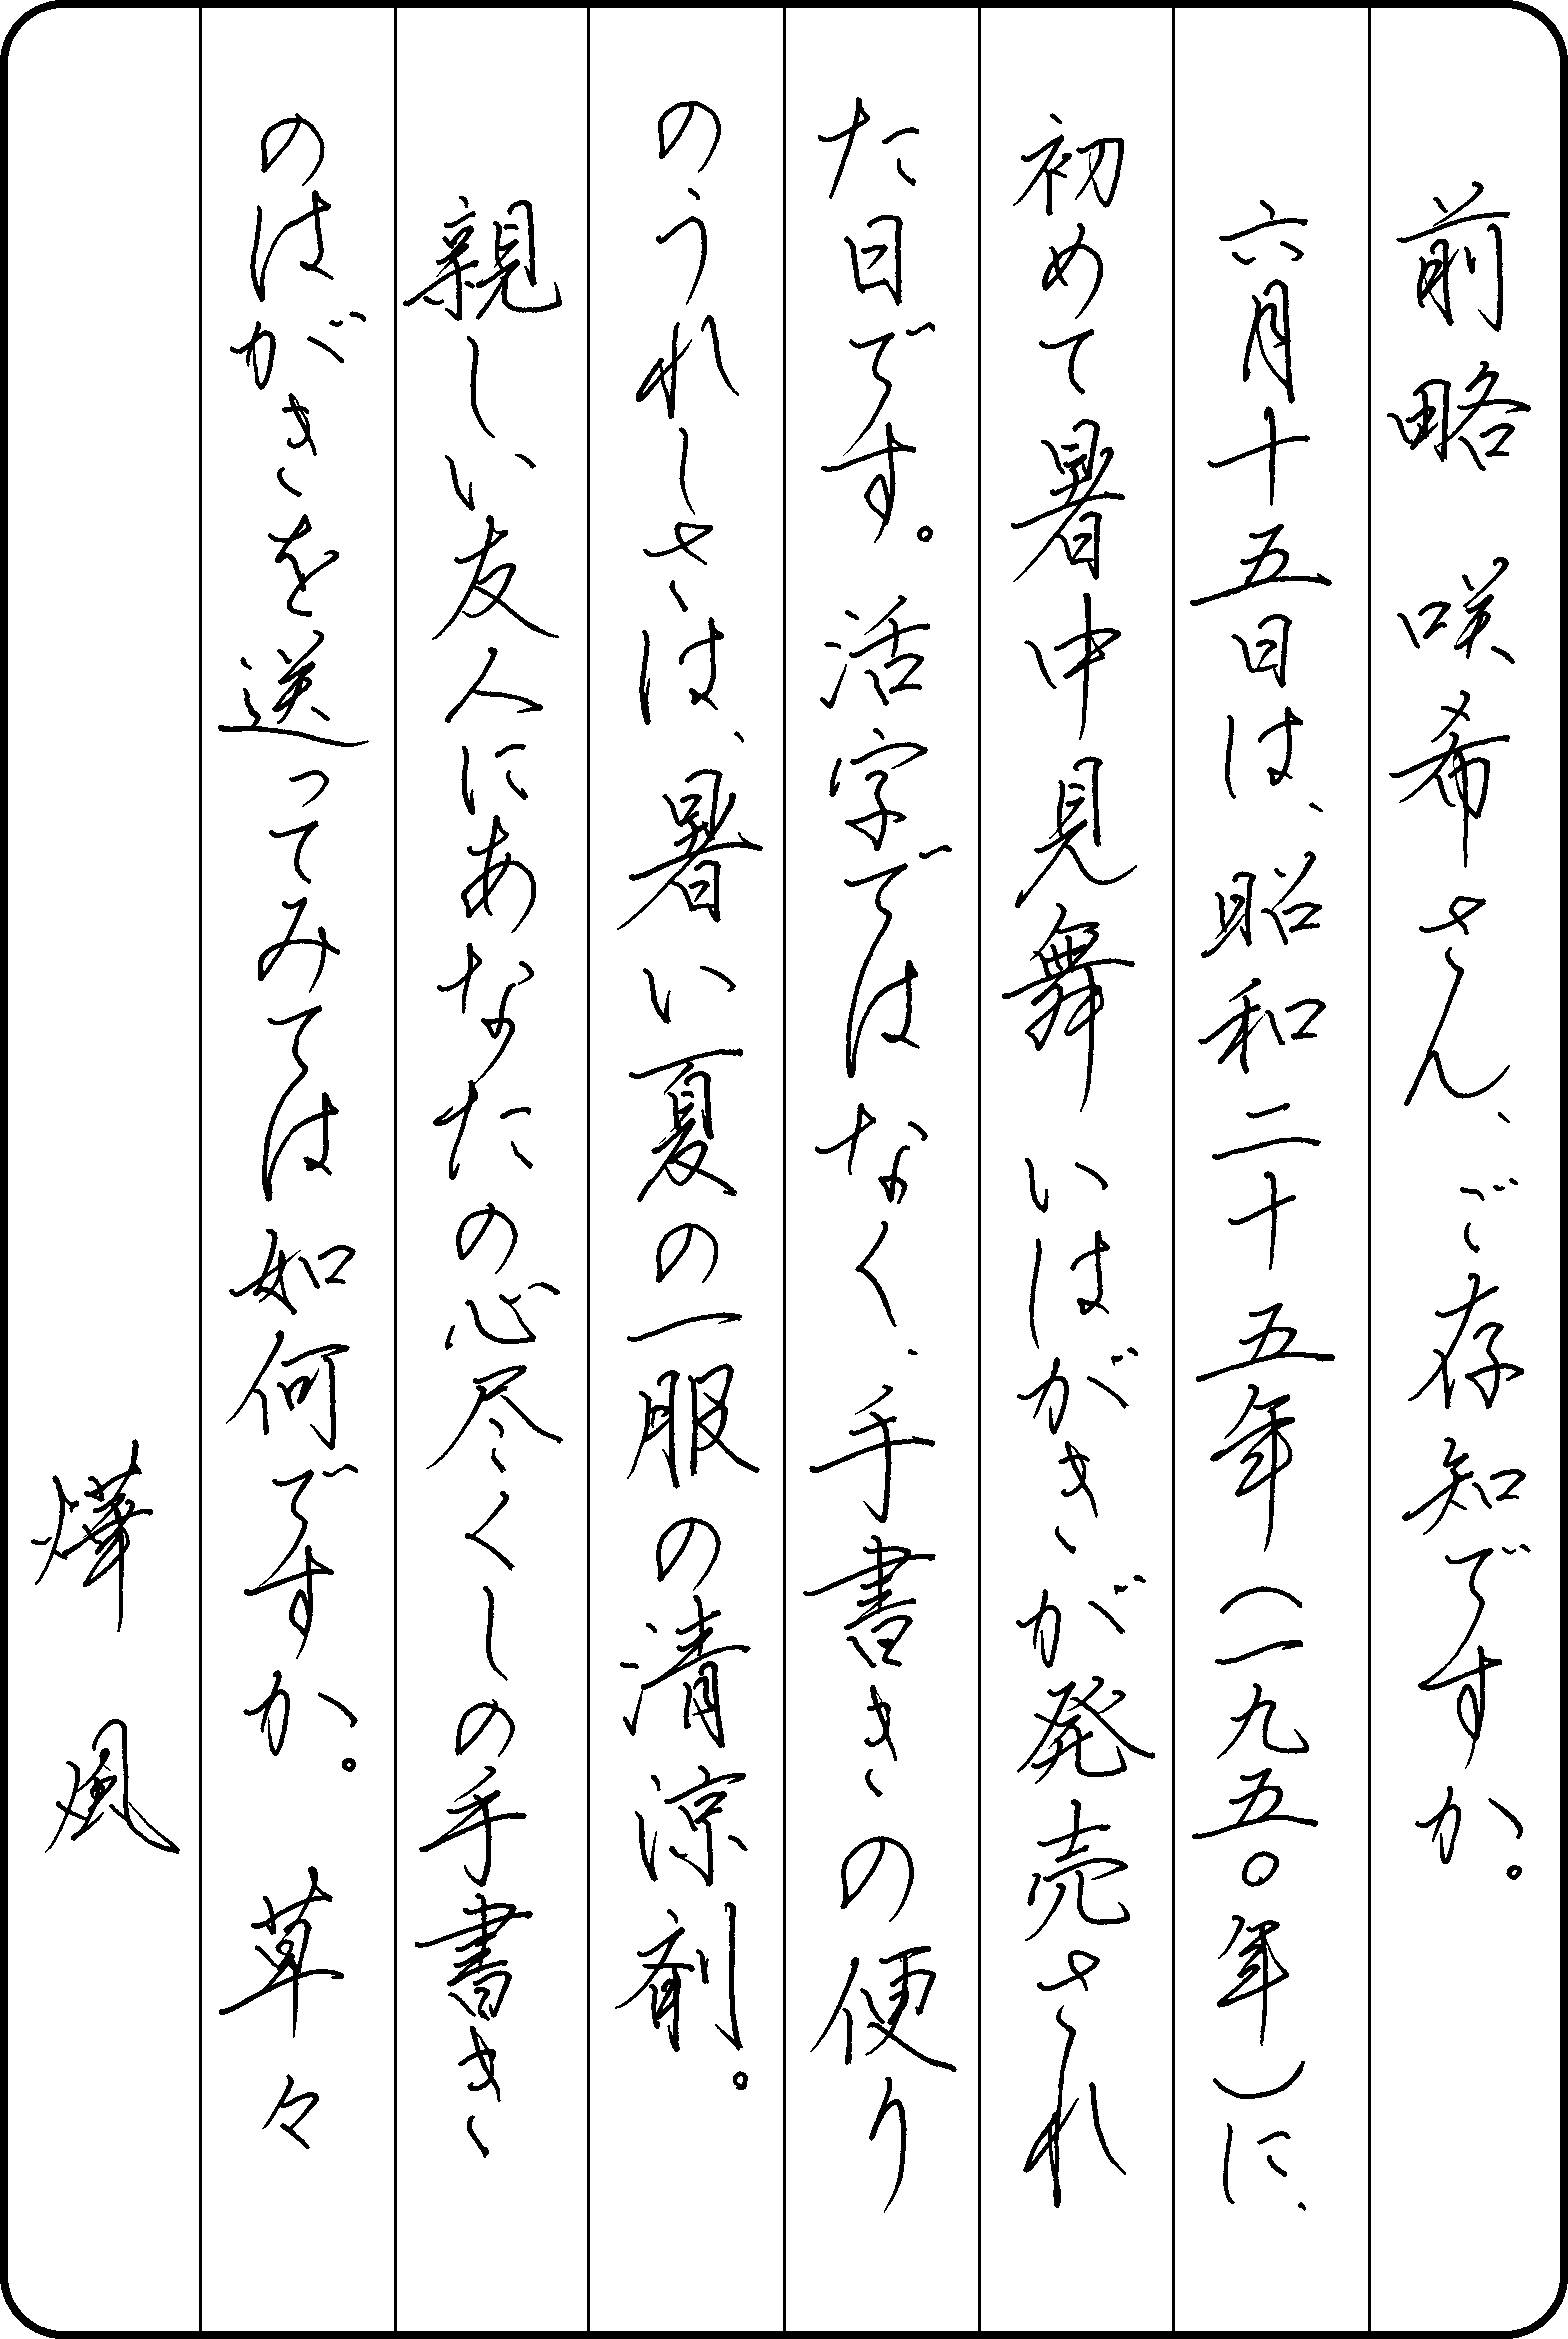 前略 咲希さん、ご存知ですか。
六月十五日は、昭和二十五年(一九五〇年)に、
初めて暑中見舞いはがきが発売され
た日です。活字ではなく、手書きの便り
のうれしさは、暑い夏の一服の清涼剤。
親しい友人にあなたの心尽くしの手書き
のはがきを送ってみては如何ですか。 草々
燁風